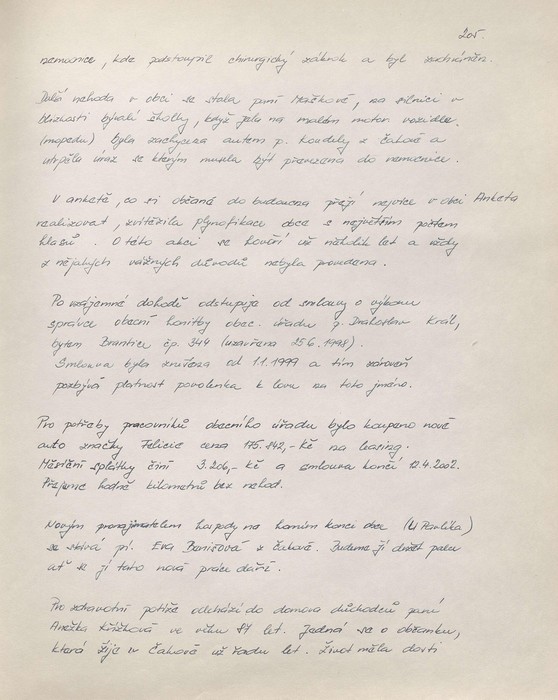 205.
nemocnice, kde podstoupil chirurgický zákrok a byl zachráněn.
Další nehoda v obci se stala paní Mačkové, na silnici v
blízkosti bývalé školky, když jela na malém motor. vozidle.
(mopedu) byla zachycena autem p. Koudely z Čakové a
utrpěla úraz se kterým musela být převezena do nemocnice.
V anketě, co si občané do budoucna přejí nejvíce v obci Anketa
realizovat, zvítězila plynofikace obce s největším počtem
hlasů. O této akci se hovoří už několik let a vždy
z nějakých vážných důvodů nebyla provedena.
Po vzájemné dohodě odstupuje od smlouvy o výkonu
správce obecní honitby obec. úřadu p. Drahoslav Král,
bytem Brantice čp. 344 (uzavřena 25.6.1998).
Smlouva byla zrušena od 1.1.1999 a tím zároveň
pozbývá platnost povolenka k lovu na toto jméno.
Pro potřeby pracovníků obecního úřadu bylo koupeno nové
auto značky Felicie cena 175.842,-Kč na leasing.
Měsíční splátky činí 3.206,-Kč a smlouva končí 12.4.2002.
Přejeme hodně kilometrů bez nehod.
Novým pronajímatelem hospody na horním konci obce (U Pavlíka)
se stává pí. Eva Benišová z Čakové. Budeme jí držet palce
ať se jí tato nová práce daří.
Pro zdravotní potíže odchází do domova důchodců paní
Anežka Křížková ve věku 84 let. Jedná se o občanku,
která žije v Čakové už řadu let. Život měla dosti